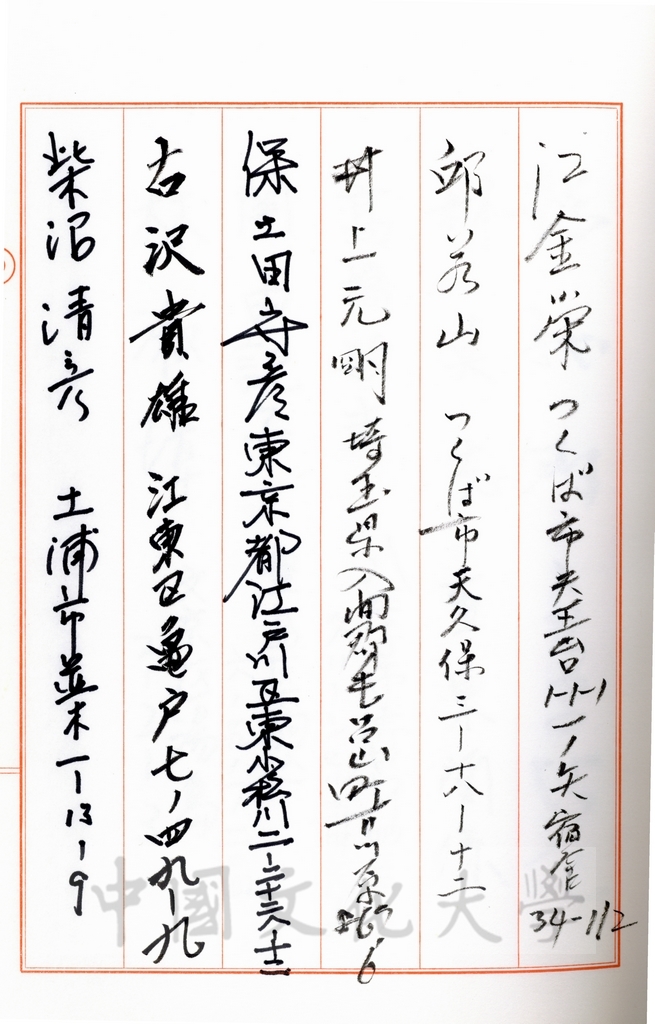 江金榮 つくば市天王台 一ノ矢宿舎 34-112
邱若山 つくば市天久保三ー十六ー十二
井上元剛 埼玉県入間郡毛呂山町川原 6
保土田守彦 東京都江戸川区東小松川二ー二十六ー十二
古沢貴雄 江東区亀戸七ノ四九ー九
柴沼清彦 土浦市並木一ー13ー9
中國文化大學